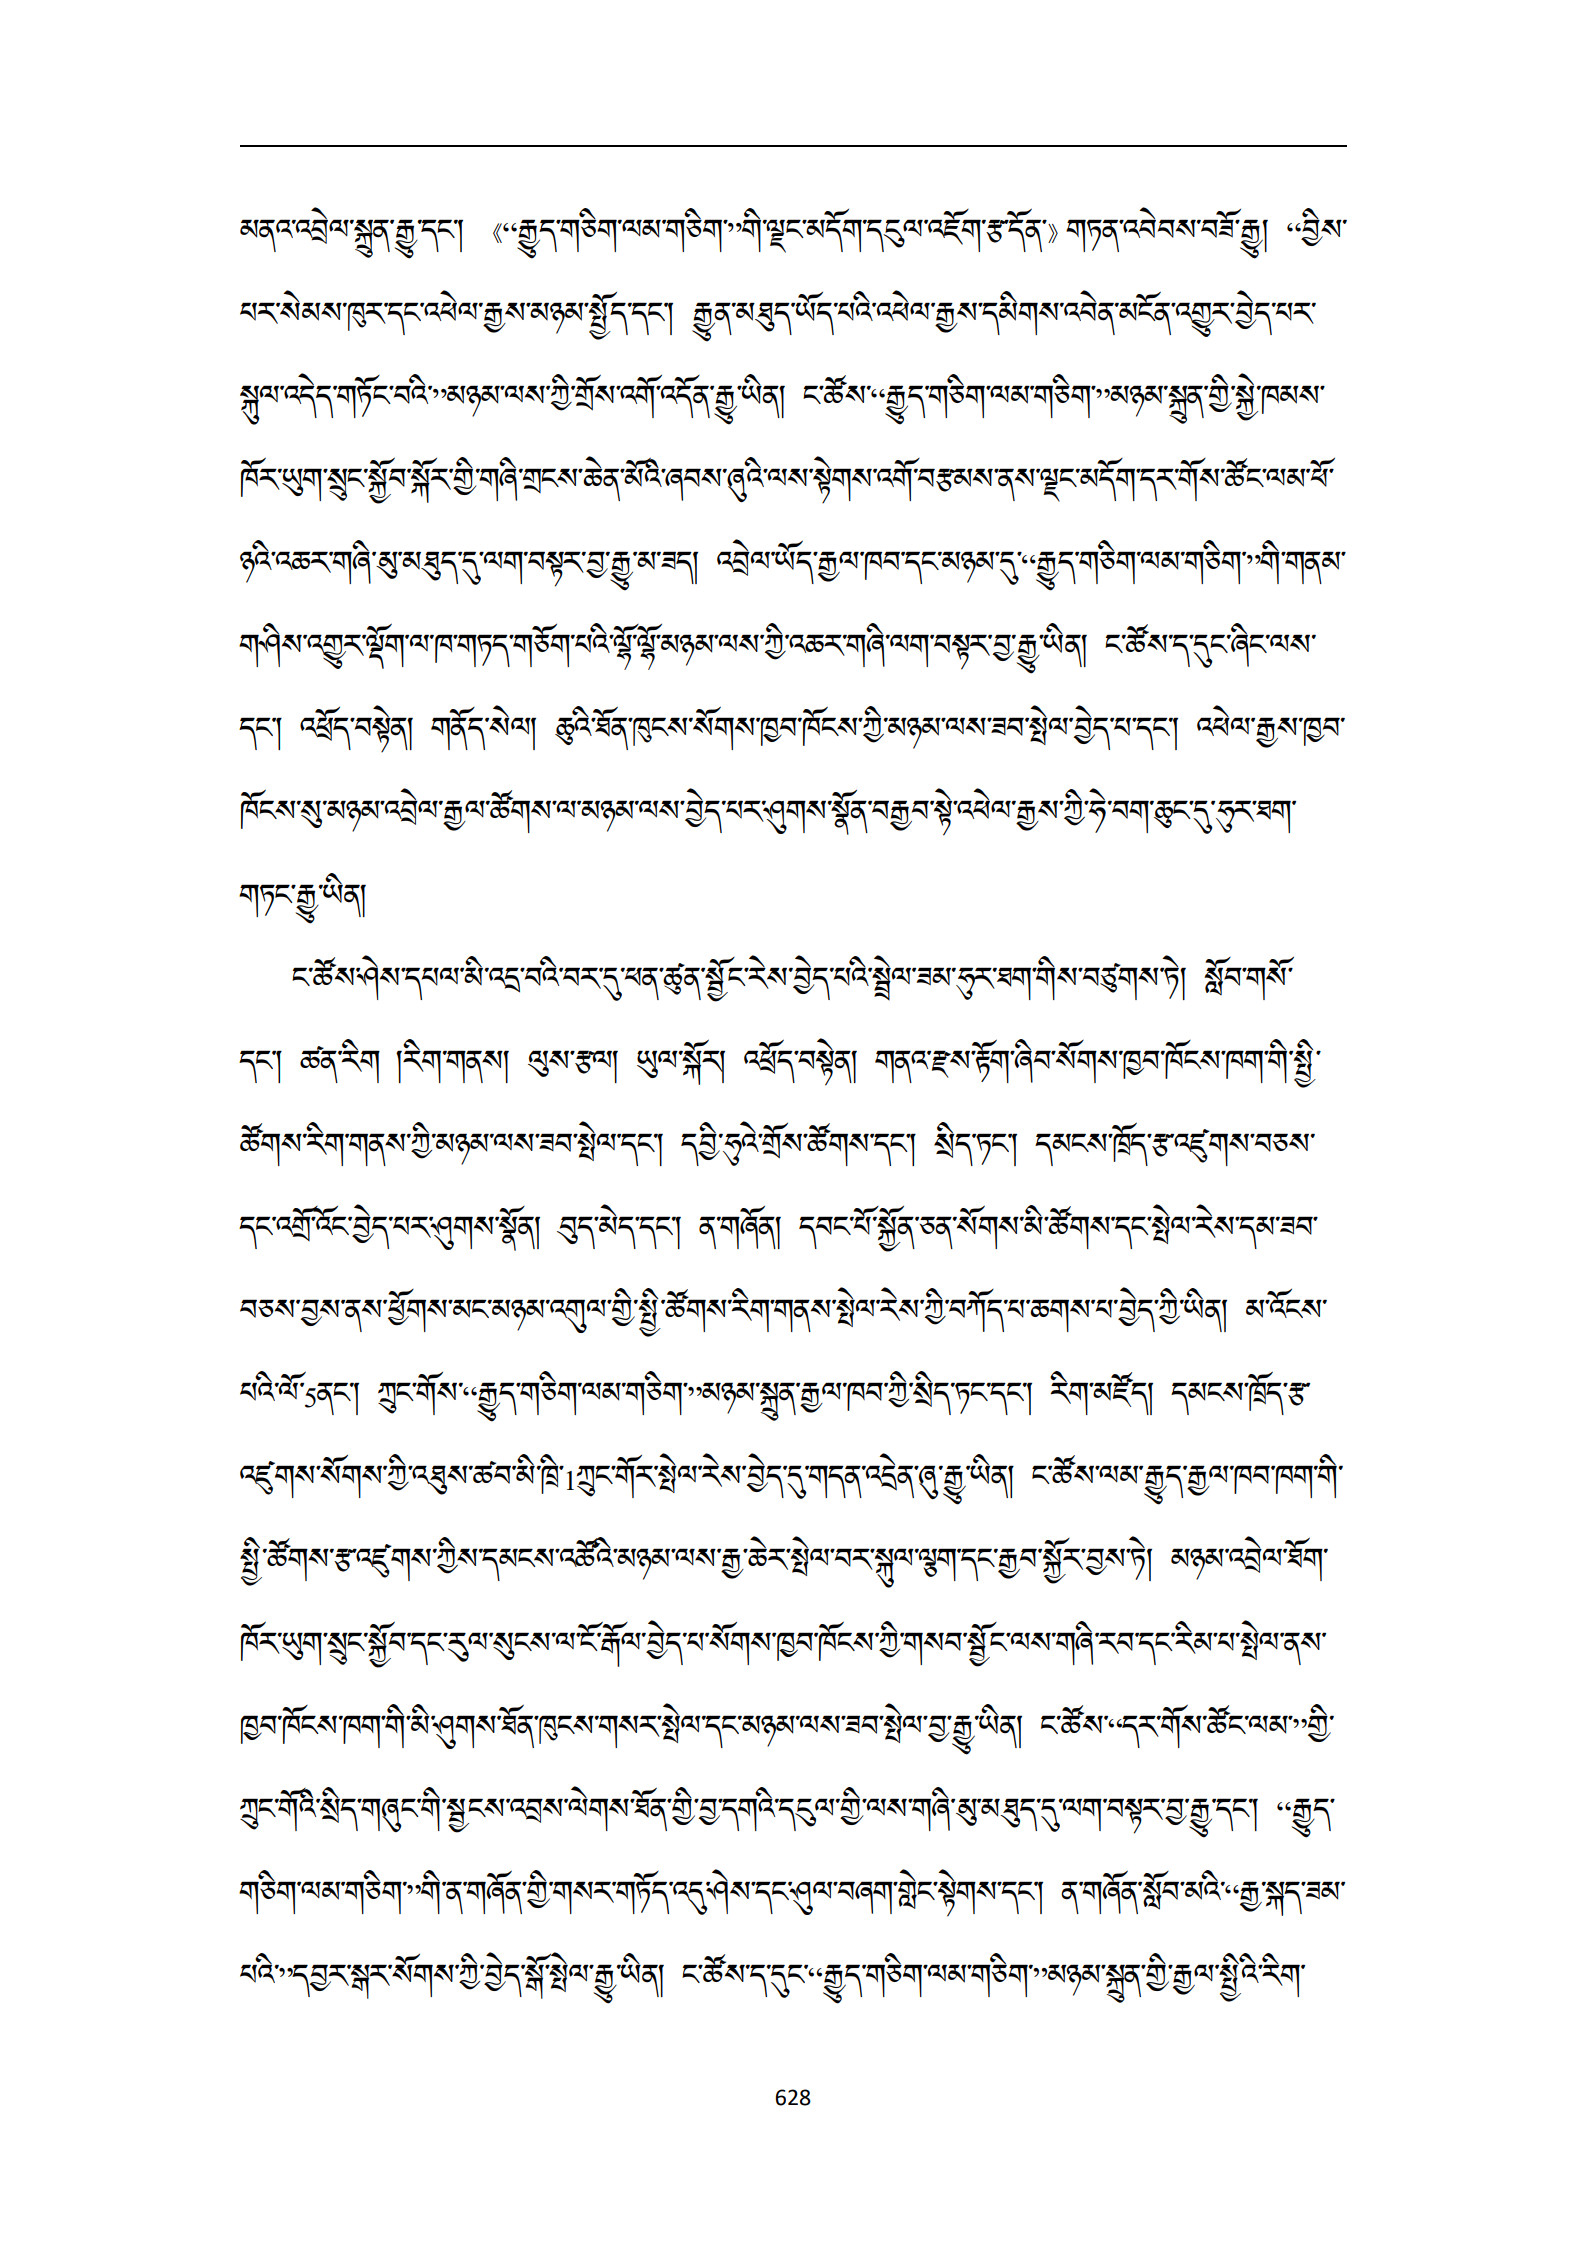 མནའ་འབྲེལ་སྐྲུན་རྒྱུ་དང་། 《“རྒྱུད་གཅིག་ལམ་གཅིག་”གི་ལྗང་མདོག་དངུལ་འཇོག་རྩ་དོན་》གཏན་འབེབས་བཟོ་རྒྱུ། “བྱིས་
པར་སེམས་ཁུར་དང་འཕེལ་རྒྱས་མཉམ་སྤྱོད་དང་། རྒྱུན་མཐུད་ཡོད་པའི་འཕེལ་རྒྱས་དམིགས་འབེན་མངོན་འགྱུར་བྱེད་པར་
སྐུལ་འདེད་གཏོང་བའི་”མཉམ་ལས་ཀྱི་གྲོས་འགོ་འདོན་རྒྱུ་ཡིན། ང་ཚོས་“རྒྱུད་གཅིག་ལམ་གཅིག་”མཉམ་སྐྲུན་གྱི་སྐྱེ་ཁམས་
ཁོར་ཡུག་སྲུང་སྐྱོབ་སྐོར་གྱི་གཞི་གྲངས་ཆེན་མོའི་ཞབས་ཞུའི་ལས་སྟེགས་འགོ་བརྩམས་ནས་ལྗང་མདོག་དར་གོས་ཚོང་ལམ་ཕོ་
ཉའི་འཆར་གཞི་མུ་མཐུད་དུ་ལག་བསྟར་བྱ་རྒྱུ་མ་ཟད། འབྲེལ་ཡོད་རྒྱལ་ཁབ་དང་མཉམ་དུ་“རྒྱུད་གཅིག་ལམ་གཅིག་”གི་གནམ་
གཤིས་འགྱུར་ལྡོག་ལ་ཁ་གཏད་གཅོག་པའི་ལྷོ་ལྷོ་མཉམ་ལས་ཀྱི་འཆར་གཞི་ལག་བསྟར་བྱ་རྒྱུ་ཡིན། ང་ཚོས་ད་དུང་ཞིང་ལས་
དང་། འཕྲོད་བསྟེན། གནོད་སེལ། ཆུའི་ཐོན་ཁུངས་སོགས་ཁྱབ་ཁོངས་ཀྱི་མཉམ་ལས་ཟབ་སྤེལ་བྱེད་པ་དང་། འཕེལ་རྒྱས་ཁྱབ་
ཁོངས་སུ་མཉམ་འབྲེལ་རྒྱལ་ཚོགས་ལ་མཉམ་ལས་བྱེད་པར་ཤུགས་སྣོན་བརྒྱབ་སྟེ་འཕེལ་རྒྱས་ཀྱི་ཧེ་བག་ཆུང་དུ་ཧུར་ཐག་
གཏང་རྒྱུ་ཡིན།
ང་ཚོས་ཤེས་དཔལ་མི་འདྲ་བའི་བར་དུ་ཕན་ཚུན་སྦྱོང་རེས་བྱེད་པའི་སྦྲེལ་ཟམ་ཧུར་ཐག་གིས་བཙུགས་ཏེ། སློབ་གསོ་
དང་། ཚན་རིག །རིག་གནས། ལུས་རྩལ། ཡུལ་སྐོར། འཕྲོད་བསྟེན། གནའ་རྫས་རྟོག་ཞིབ་སོགས་ཁྱབ་ཁོངས་ཁག་གི་སྤྱི་
ཚོགས་རིག་གནས་ཀྱི་མཉམ་ལས་ཟབ་སྤེལ་དང་། དབྱི་ཧུའེ་གྲོས་ཚོགས་དང་། སྲིད་ཏང་། དམངས་ཁྲོད་རྩ་འཛུགས་བཅས་
དང་འགྲོ་འོང་བྱེད་པར་ཤུགས་སྣོན། བུད་མེད་དང་། ན་གཞོན། དབང་པོ་སྐྱོན་ཅན་སོགས་མི་ཚོགས་དང་སྤེལ་རེས་དམ་ཟབ་
བཅས་བྱས་ནས་ཕྱོགས་མང་མཉམ་འགུལ་གྱི་སྤྱི་ཚོགས་རིག་གནས་སྤེལ་རེས་ཀྱི་བཀོད་པ་ཆགས་པ་བྱེད་ཀྱི་ཡིན། མ་འོངས་
པའི་ལོ་5ནང་། ཀྲུང་གོས་“རྒྱུད་གཅིག་ལམ་གཅིག་”མཉམ་སྐྲུན་རྒྱལ་ཁབ་ཀྱི་སྲིད་ཏང་དང་། རིག་མཛོད། དམངས་ཁྲོད་རྩ་
འཛུགས་སོགས་ཀྱི་འཐུས་ཚབ་མི་ཁྲི་1ཀྲུང་གོར་སྤེལ་རེས་བྱེད་དུ་གདན་འདྲེན་ཞུ་རྒྱུ་ཡིན། ང་ཚོས་ལམ་རྒྱུད་རྒྱལ་ཁབ་ཁག་གི་
སྤྱི་ཚོགས་རྩ་འཛུགས་ཀྱིས་དམངས་འཚོའི་མཉམ་ལས་རྒྱ་ཆེར་སྤེལ་བར་སྐུལ་ལྕག་དང་རྒྱབ་སྐྱོར་བྱས་ཏེ། མཉམ་འབྲེལ་ཐོག་
ཁོར་ཡུག་སྲུང་སྐྱོབ་དང་རུལ་སུངས་ལ་ངོ་རྒོལ་བྱེད་པ་སོགས་ཁྱབ་ཁོངས་ཀྱི་གསབ་སྦྱོང་ལས་གཞི་རབ་དང་རིམ་པ་སྤེལ་ནས་
ཁྱབ་ཁོངས་ཁག་གི་མི་ཤུགས་ཐོན་ཁུངས་གསར་སྤེལ་དང་མཉམ་ལས་ཟབ་སྤེལ་བྱ་རྒྱུ་ཡིན། ང་ཚོས་“དར་གོས་ཚོང་ལམ་”གྱི་
ཀྲུང་གོའི་སྲིད་གཞུང་གི་སྦྱངས་འབྲས་ལེགས་ཐོན་གྱི་བྱ་དགའི་དངུལ་གྱི་ལས་གཞི་མུ་མཐུད་དུ་ལག་བསྟར་བྱ་རྒྱུ་དང་། “རྒྱུད་
གཅིག་ལམ་གཅིག་”གི་ན་གཞོན་གྱི་གསར་གཏོད་འདུ་ཤེས་དང་ཤུལ་བཞག་གླེང་སྟེགས་དང་། ན་གཞོན་སློབ་མའི་“རྒྱ་སྐད་ཟམ་
པའི་”དབྱར་སྒར་སོགས་ཀྱི་བྱེད་སྒོ་སྤེལ་རྒྱུ་ཡིན། ང་ཚོས་ད་དུང་“རྒྱུད་གཅིག་ལམ་གཅིག་”མཉམ་སྐྲུན་གྱི་རྒྱལ་སྤྱིའི་རིག་
628